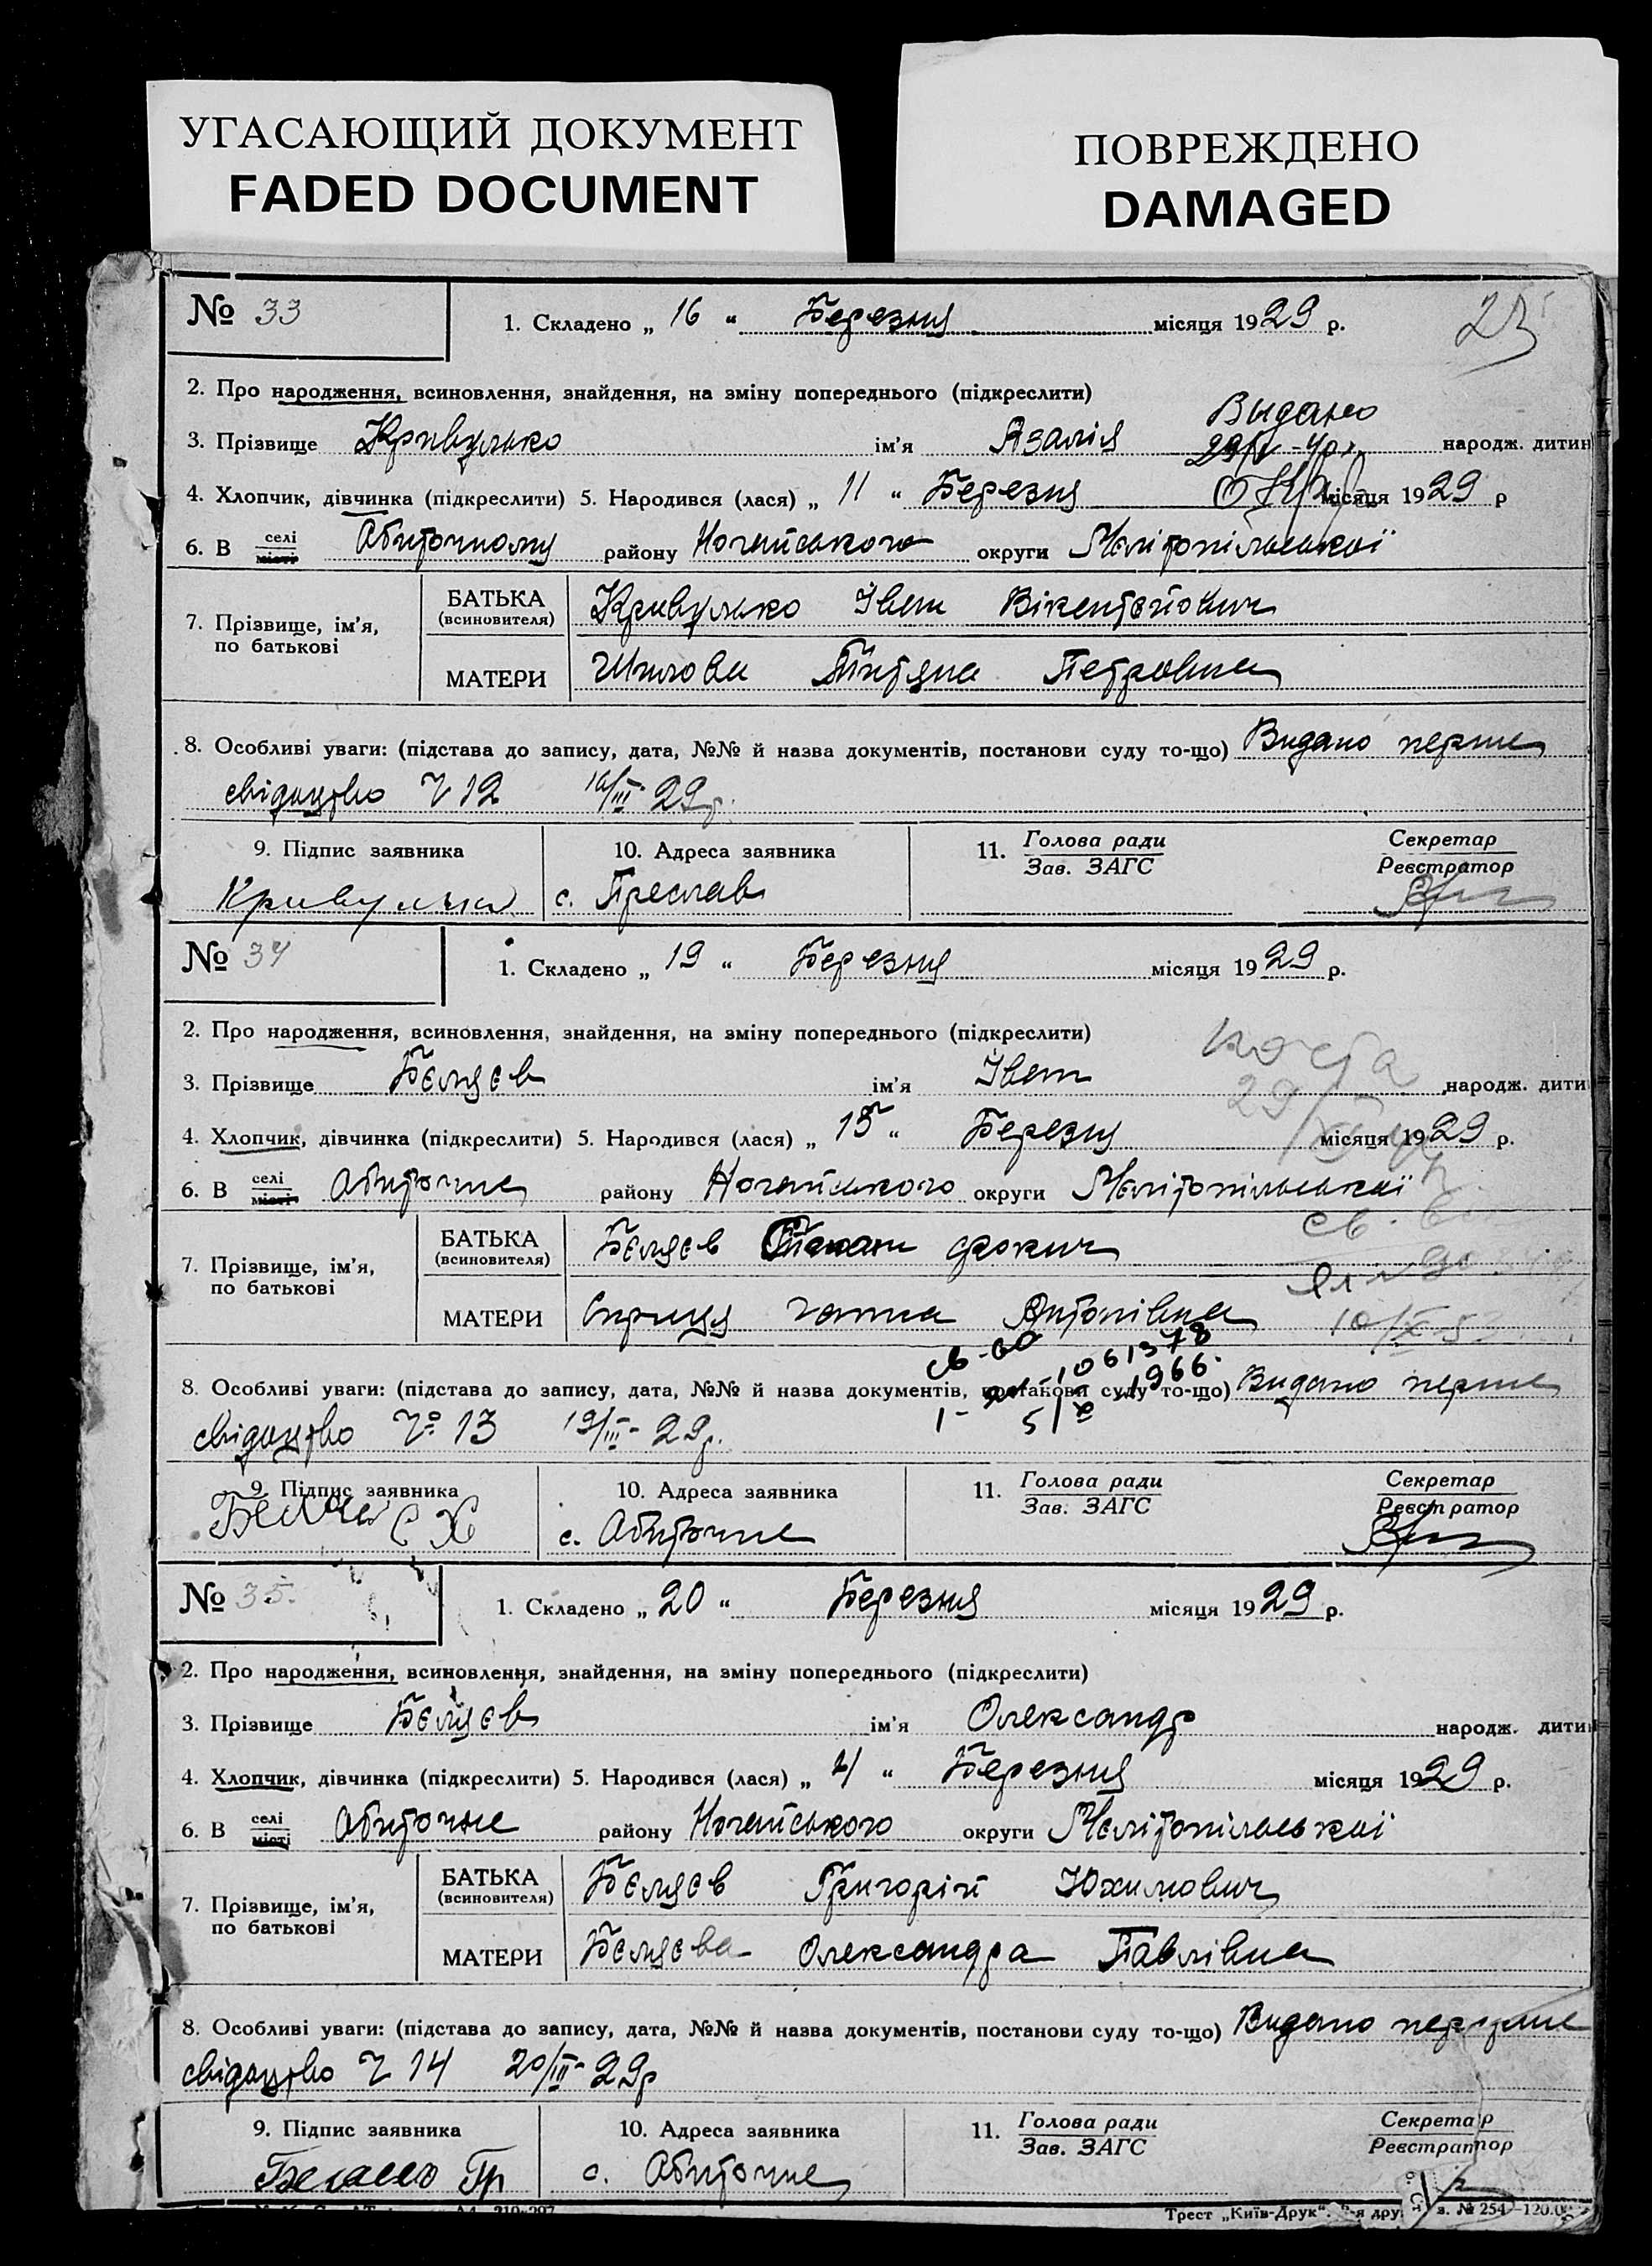 УГАСАЮЩИЙ ДОКУМЕНТ
FADED DOCUMENT
ПОВРЕЖДЕНО
DAMAGED
№ 33
1. Складено „ 16 “ Березня місяця 1929 р.
2. Про народження, всиновлення, знайдення, на зміну попереднього (підкреслити)
Выдано
3. Прізвище Кривулько ім'я Азалія народж. дитин
4. Хлопчик, дівчинка (підкреслити) 5. Народився (лася) „ 11 “ Березня місяця 1929 р
6. В селі місті Абиточному району Ногайського округи Мелітопільської
7. Прізвище, ім'я, по батькові
БАТЬКА (всиновителя) Кривулько Іван Вікентейович
МАТЕРИ Шилова Титяна Петровна
8. Особливі уваги: (підстава до запису, дата, №№ й назва документів, постанови суду то-що) Видано перше
свідоцтво Ч 12 16/III-29р.
9. Підпис заявника
10. Адреса заявника
11. Голова ради
Зав. ЗАГС
Секретар
Реєстратор
Кривулько с. Преслав
№ 34
1. Складено „ 19 “ Березня місяця 1929 р.
2. Про народження, всиновлення, знайдення, на зміну попереднього (підкреслити)
3. Прізвище Бєляєв ім'я Іван народж. дити
4. Хлопчик, дівчинка (підкреслити) 5. Народився (лася) „ 15 “ Березня місяця 1929 р.
6. В селі місті Абиточне району Ногайського округи Мелітопільської
7. Прізвище, ім'я, по батькові
БАТЬКА (всиновителя) Бєляєв
МАТЕРИ Антонівна
1061378
1966.
8. Особливі уваги: (підстава до запису, дата, №№ й назва документів, постанови суду то-що) Видано перше
свідоцтво Ч 13 19/III-29р.
9. Підпис заявника
10. Адреса заявника
11. Голова ради
Зав. ЗАГС
Секретар
Реєстратор
с. Абиточне
№ 35.
1. Складено „ 20 “ Березня місяця 1929 р.
2. Про народження, всиновлення, знайдення, на зміну попереднього (підкреслити)
3. Прізвище Бєляєв ім'я Олександр народж. дити
4. Хлопчик, дівчинка (підкреслити) 5. Народився (лася) „ “ Березня місяця 1929 р.
6. В селі місті Абиточне району Ногайського округи Мелітопільської
7. Прізвище, ім'я, по батькові
БАТЬКА (всиновителя) Бєляєв Григорій Юхимович
МАТЕРИ Бєляєва Олександра Павлівна
8. Особливі уваги: (підстава до запису, дата, №№ й назва документів, постанови суду то-що) Видано перше
свідоцтво Ч 14 20/III-29р
9. Підпис заявника
10. Адреса заявника
11. Голова ради
Зав. ЗАГС
Секретар
Реєстратор
Беляев Гр с. Абиточне
Трест „Київ-Друк“. № 254